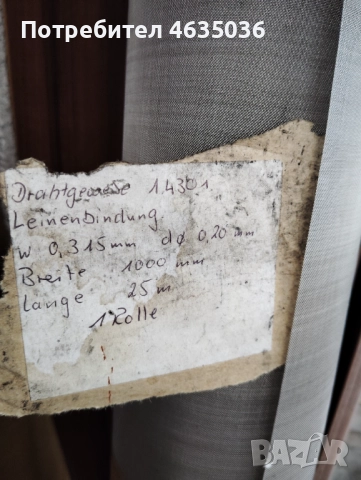 Потребител 4635036
Drahtgewebe 1.4301.
Leinenbindung
w 0,315mm dø 0,20 mm
Breite 1000 mm
Länge 25 m
1 Rolle
BAZAR